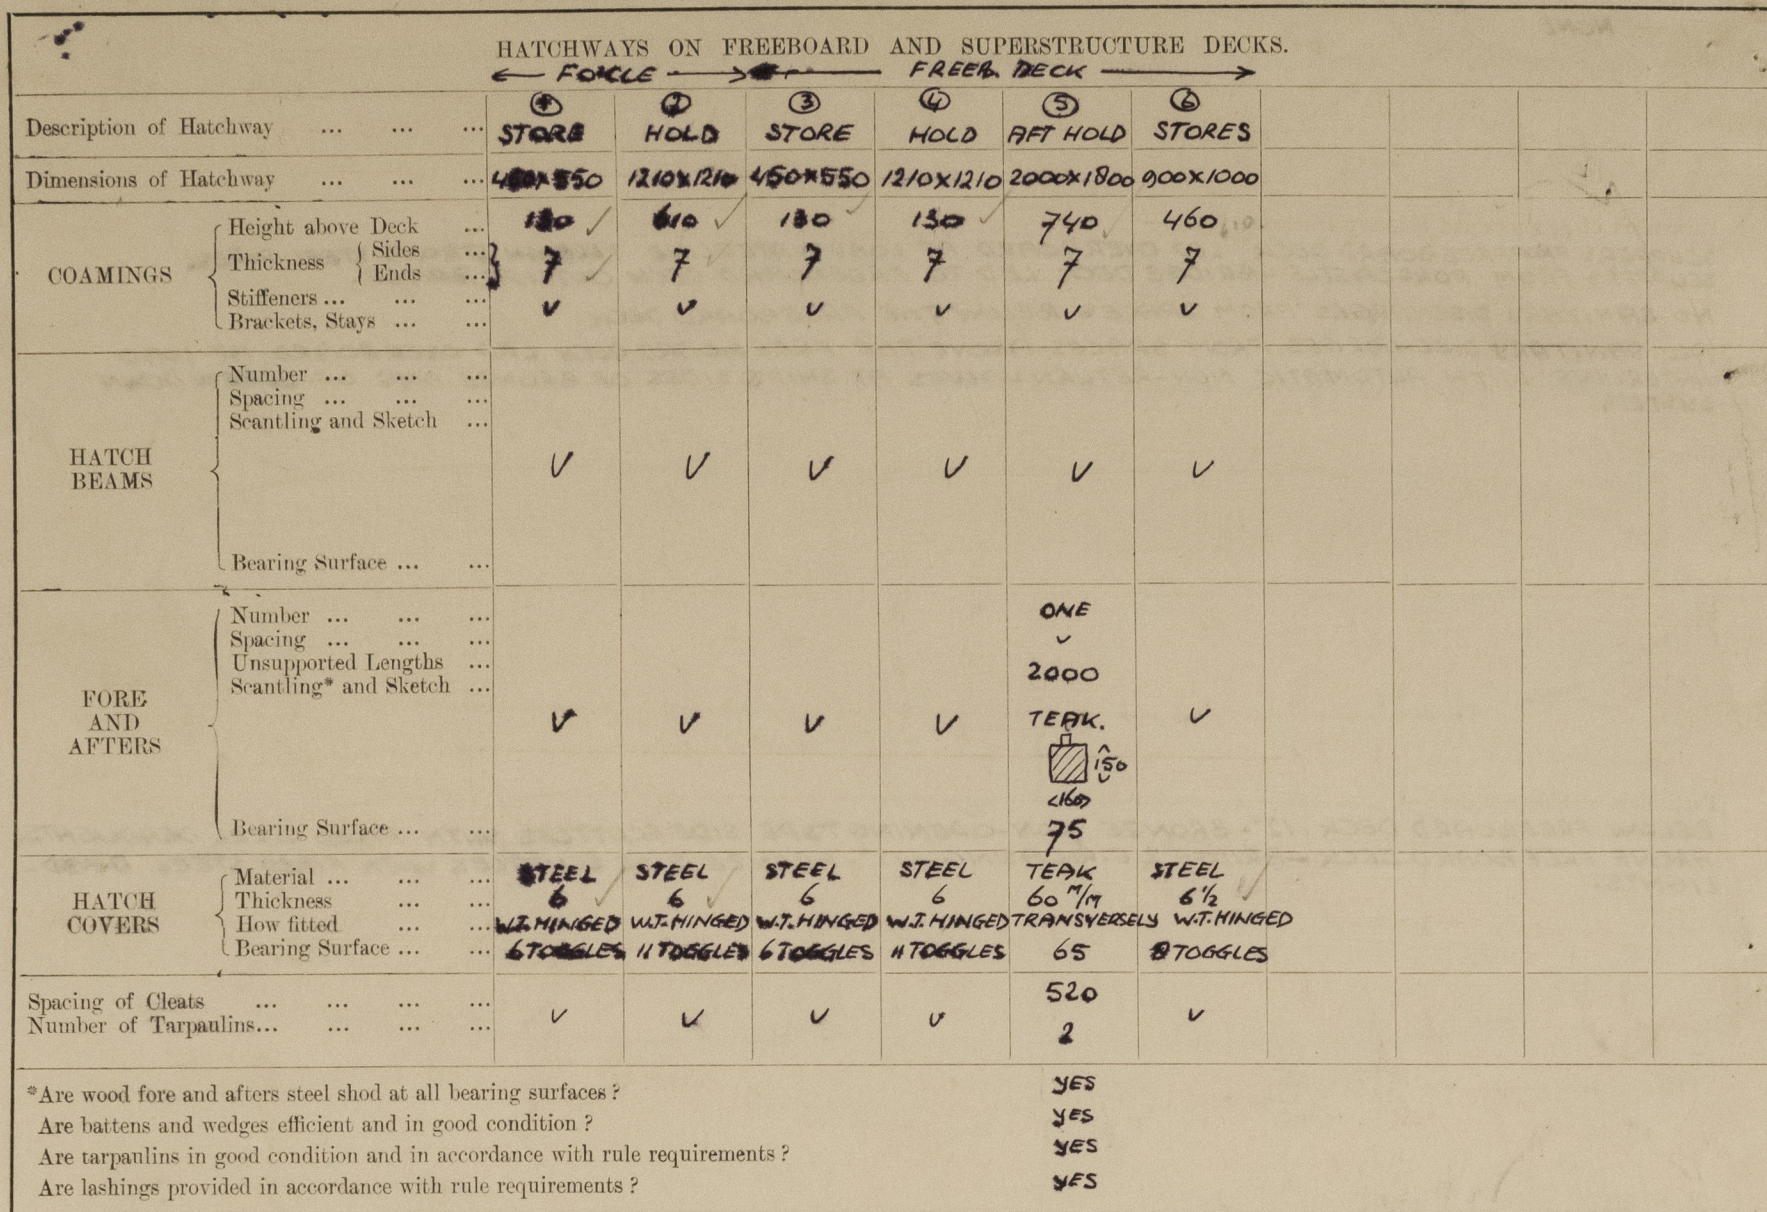 HATCHWAYS ON FREEBOARD AND SUPERSTRUCTURE DECKS.
← FO'CLE → ← FREEB. DECK →
① ② ③ ④ ⑤ ⑥
Description of Hatchway ... ... ... STORE HOLD STORE HOLD AFT HOLD STORES
Dimensions of Hatchway ... ... ... 450×550 1210×1210 450×550 1210×1210 2000×1800 900×1000
COAMINGS
Height above Deck ... 610 ✓ 740 460
Thickness { Sides ... Ends ... } 7 ✓ 7 ✓ 7 7 7 7
Stiffeners ... ... ...
Brackets, Stays ... ... ✓ ✓ ✓ ✓ ✓ ✓
HATCH BEAMS
Number ... ... ...
Spacing ... ... ...
Scantling and Sketch ...
✓ ✓ ✓ ✓ ✓ ✓
Bearing Surface ... ...
FORE AND AFTERS
Number ... ... ... ONE
Spacing ... ... ... ✓
Unsupported Lengths ... 2000
Scantling* and Sketch ...
✓ ✓ ✓ ✓ TEAK. ✓
150
<160>
Bearing Surface ... ... 75
HATCH COVERS
Material ... ... ... STEEL STEEL STEEL STEEL TEAK STEEL
Thickness ... ... 6 ✓ 6 ✓ 6 6 60 M/M 6 1/2 ✓
How fitted ... ... W.T. HINGED W.T. HINGED W.T. HINGED W.T. HINGED TRANSVERSELY W.T. HINGED
Bearing Surface ... ... 6 TOGGLES 11 TOGGLES 6 TOGGLES 11 TOGGLES 65 8 TOGGLES
Spacing of Cleats ... ... ... ... 520
Number of Tarpaulins... ... ... ... ✓ ✓ ✓ ✓ 2 ✓
*Are wood fore and afters steel shod at all bearing surfaces ? YES
Are battens and wedges efficient and in good condition ? YES
Are tarpaulins in good condition and in accordance with rule requirements ? YES
Are lashings provided in accordance with rule requirements ? YES